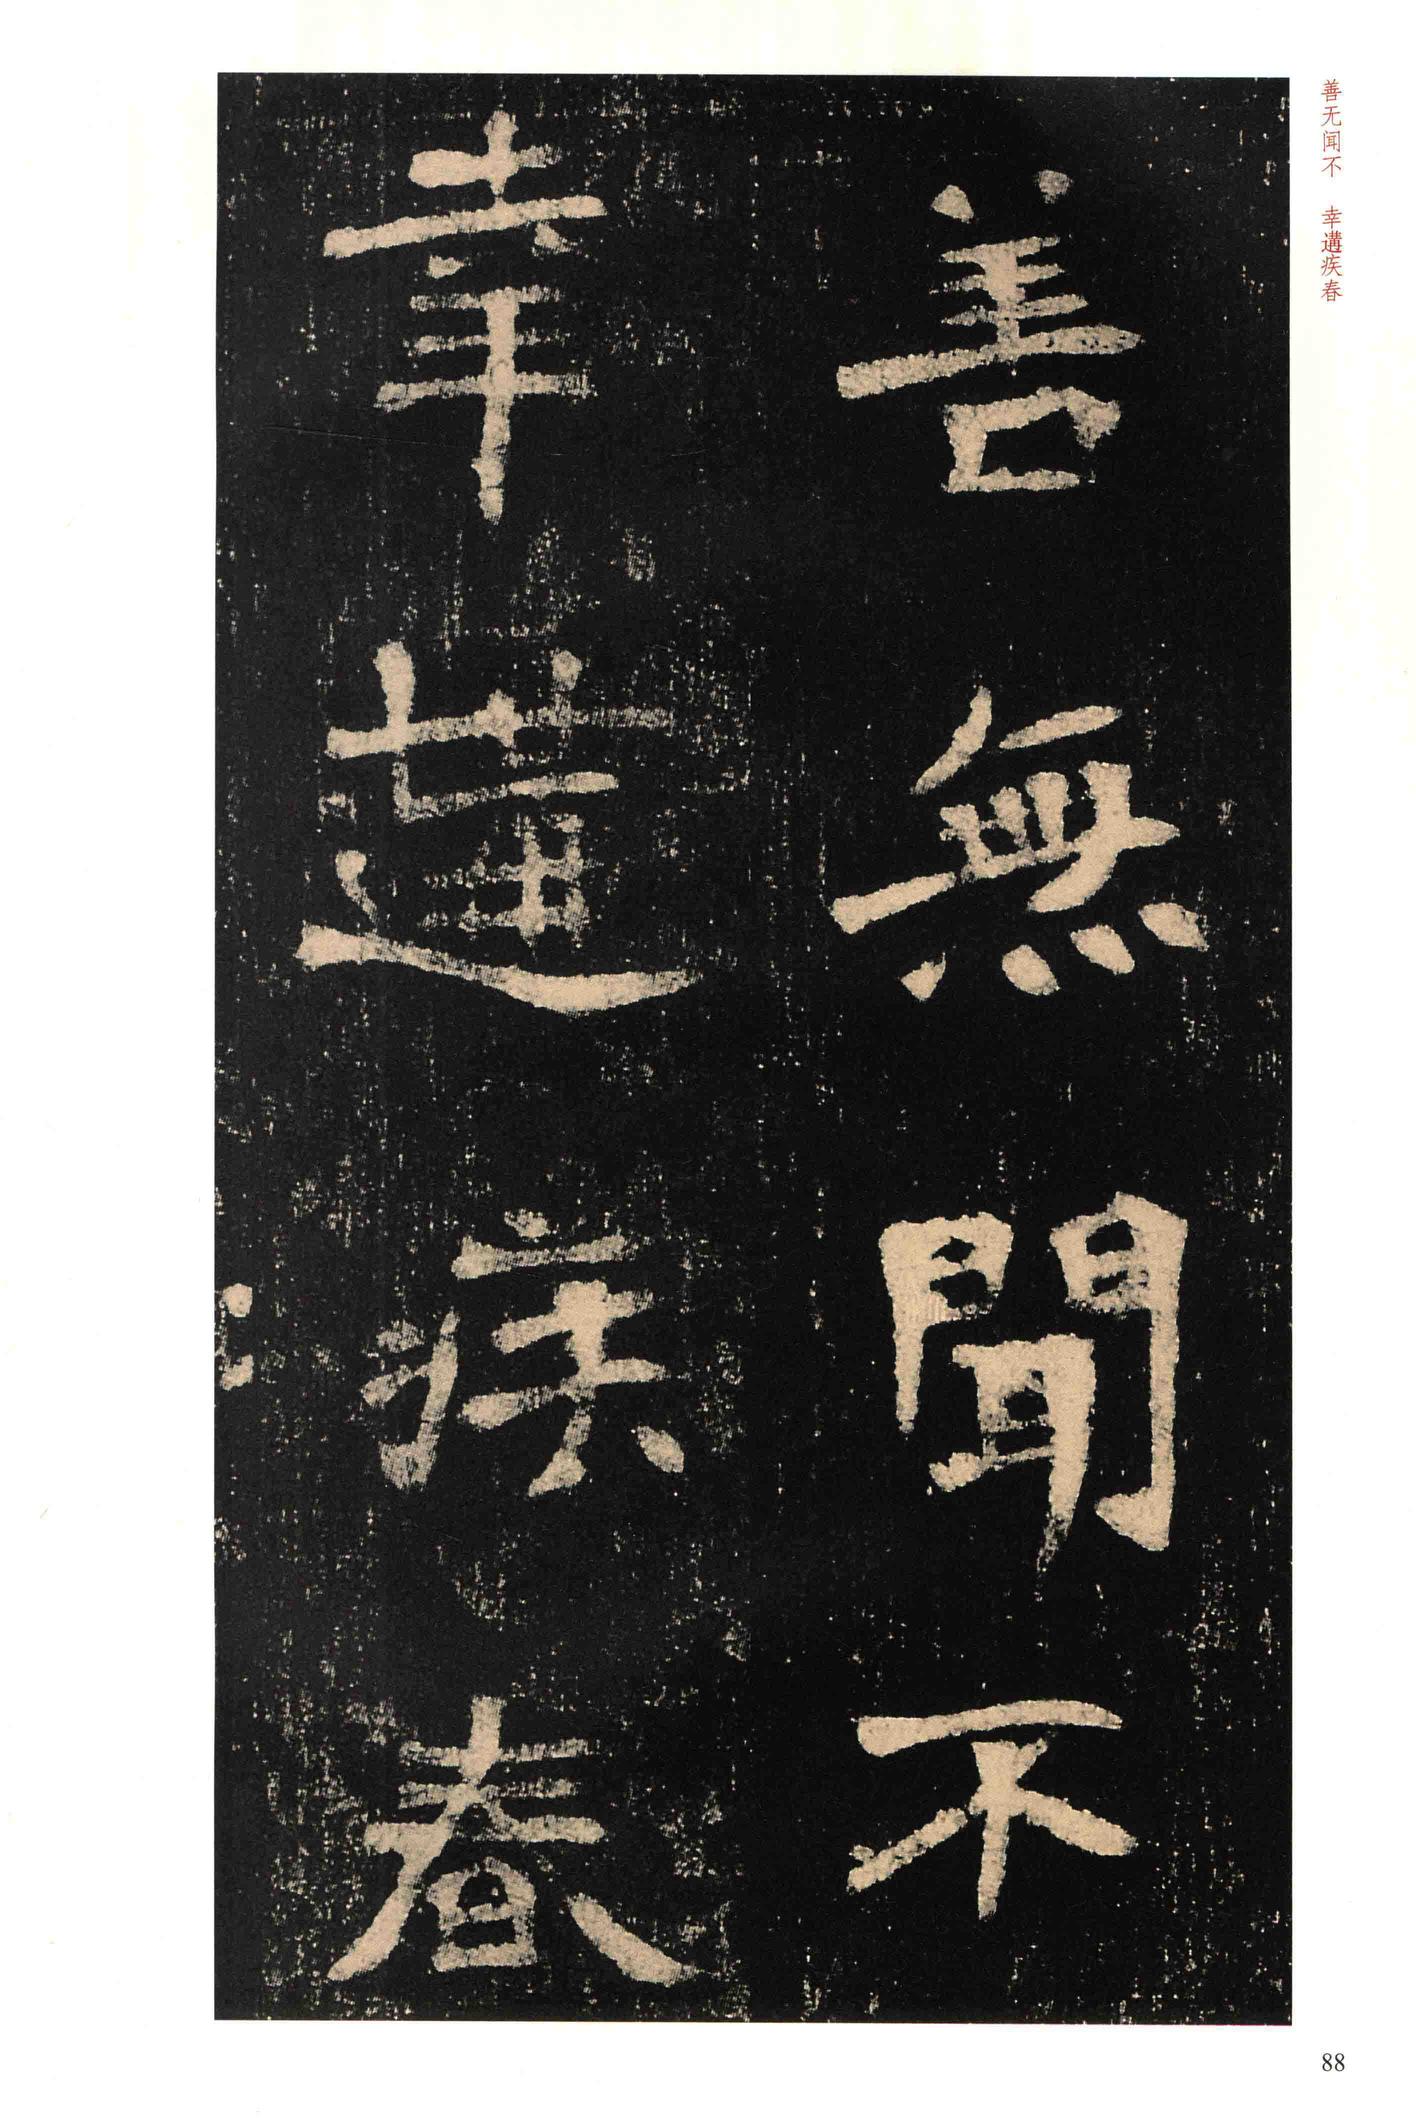 善無聞不
幸遘疾春
善无闻不 幸遘疾春
88